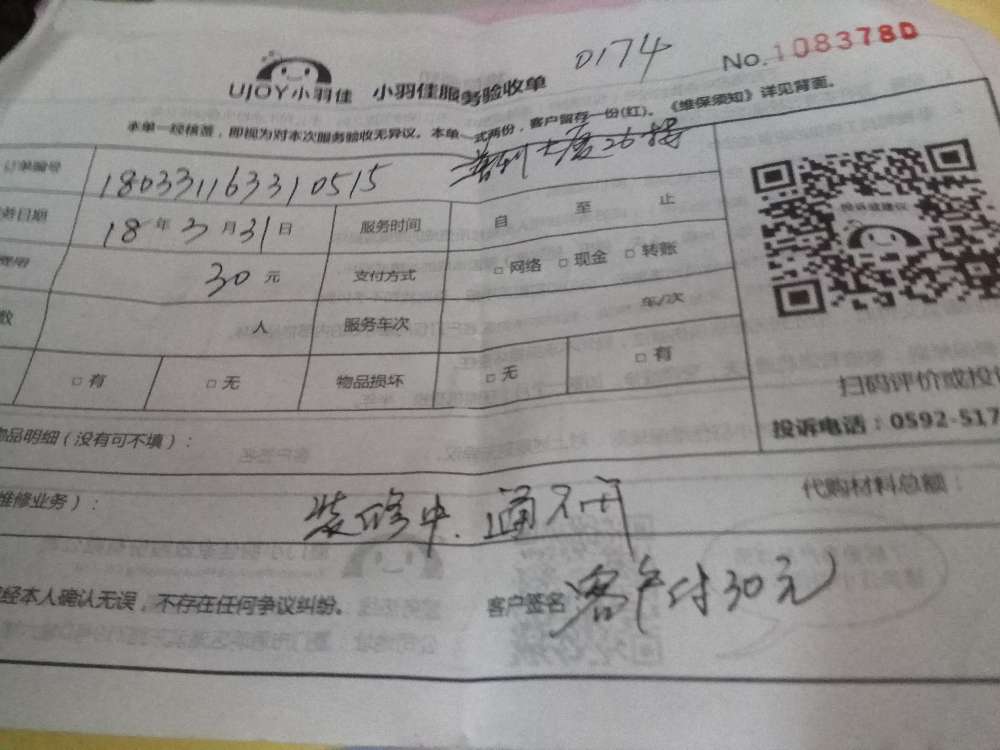 0174
No.108378D
UJOY小羽佳 小羽佳服务验收单
本单一经核盖，即视为对本次服务验收无异议。本单一式两份，客户留存一份(红)。《维保须知》详见背面。
订单编号 180331163310515
日期 18年3月31日 服务时间 自 至 止
费用 30元 支付方式 □网络 □现金 □转账
数 人 服务车次 车/次
□有 □无 物品损坏 □无 □有
投诉或建议
扫码评价或投
投诉电话：0592-517
物品明细（没有可不填）：
维修业务）： 装修中.通不开 代购材料总额：
经本人确认无误，不存在任何争议纠纷。 客户签名 客户付30元